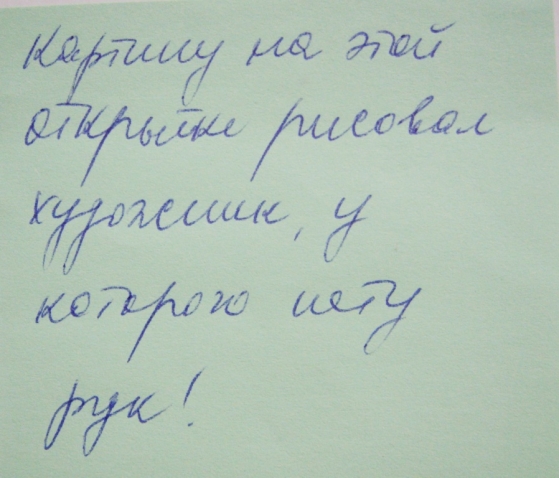 Картину на этой
открытке рисовал
художник, у
которого нету
рук!